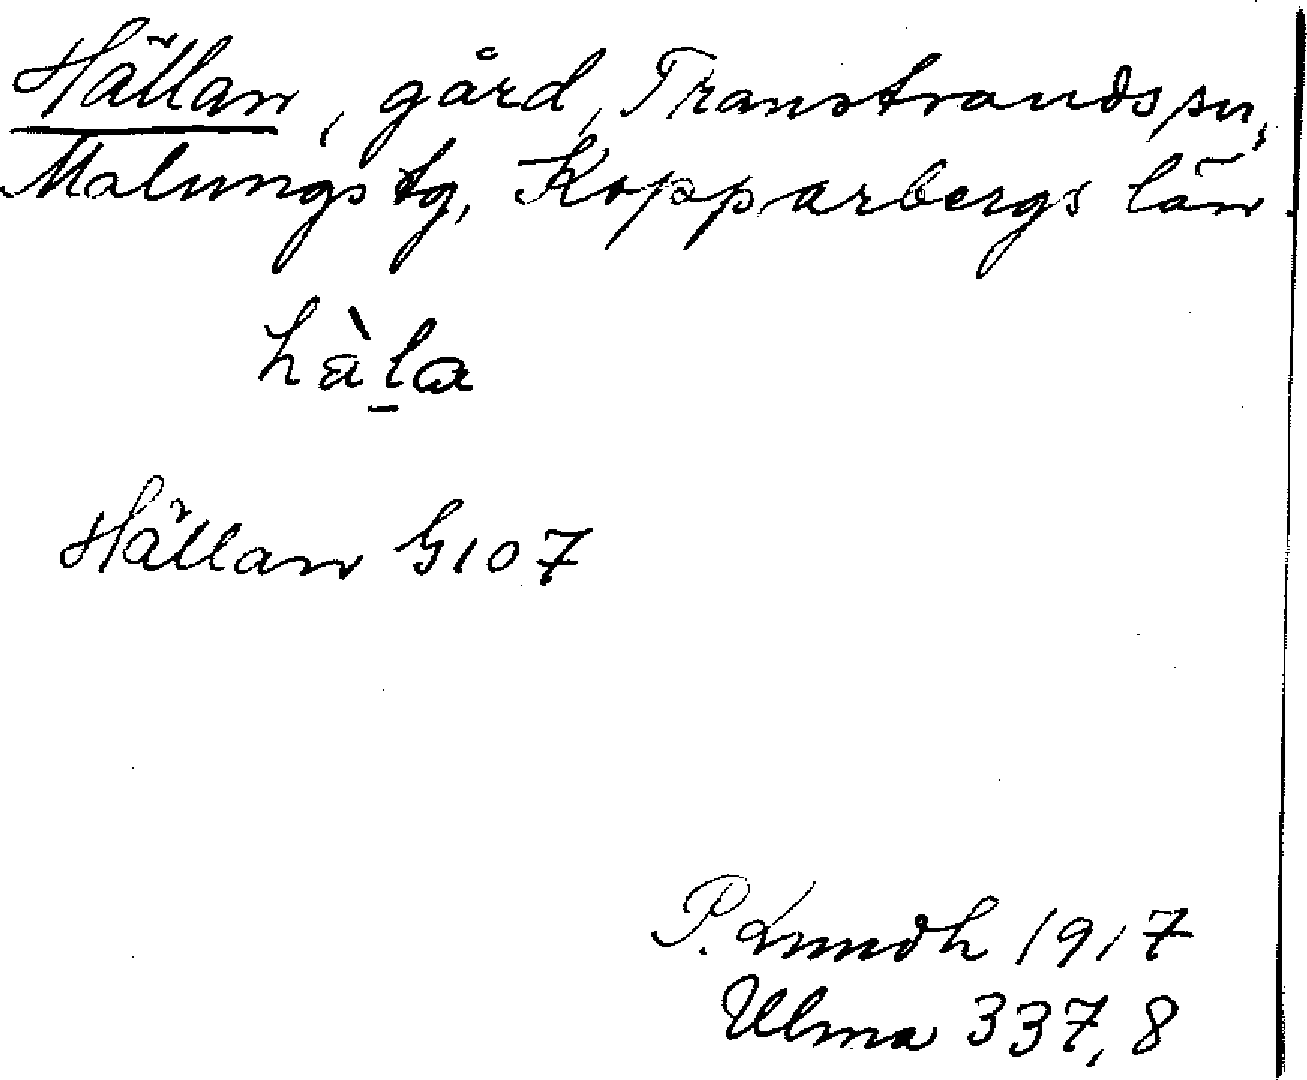 Hällan, gård, Transtrands sn,
Malungs tg, Kopparbergs län
hàl̠a
Hällan G107
P. Lundh 1917
Ulma 337, 8